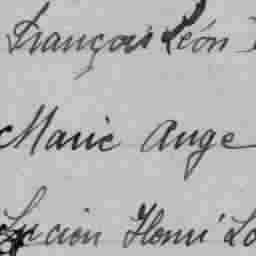 François Léon
Marie Ange
Lucien Henri Lo